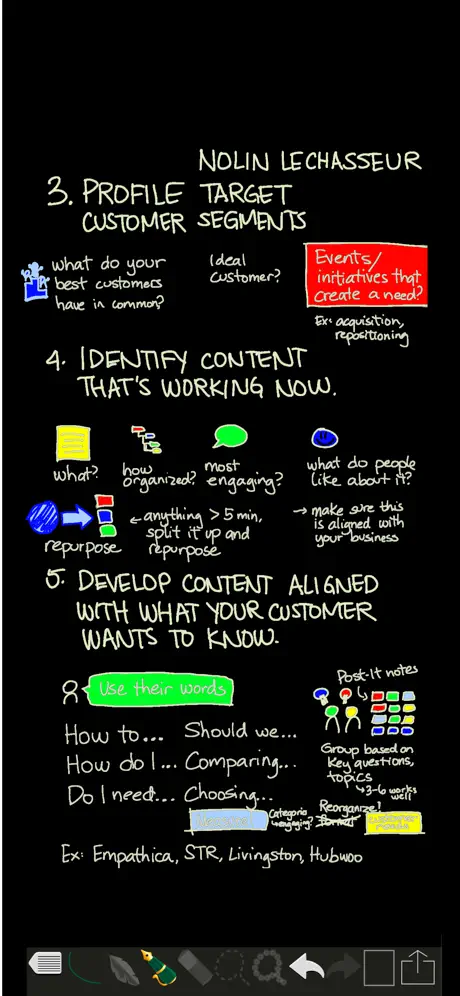 NOLIN LECHASSEUR
3. PROFILE TARGET
CUSTOMER SEGMENTS
what do your
best customers
have in common?
Ideal
customer?
Events/
initiatives that
create a need?
Ex: acquisition,
repositioning
4. IDENTIFY CONTENT
THAT'S WORKING NOW.
what?
how
organized?
most
engaging?
what do people
like about it?
repurpose
← anything > 5 min,
split it up and
repurpose
→ make sure this
is aligned with
your business
5. DEVELOP CONTENT ALIGNED
WITH WHAT YOUR CUSTOMER
WANTS TO KNOW.
Use their words
How to...
How do I...
Do I need...
Should we...
Comparing...
Choosing...
Post-It notes
Group based on
key questions,
topics
↳ 3-6 works
well
engaging?
Reorganize?
Format
Customer
Ex: Empathica, STR, Livingston, Hubwoo